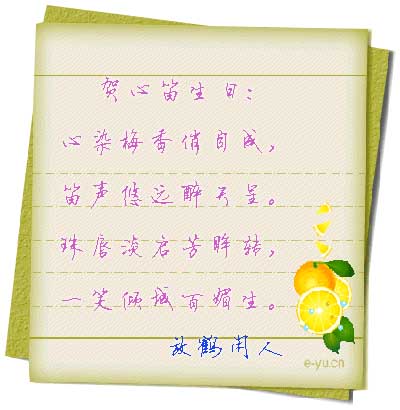 贺心笛生日：
心染梅香俏自成，
笛声悠远醉天呈。
珠唇淡启芳眸转，
一笑倾城百媚生。
放鹤闲人
e-yu.cn